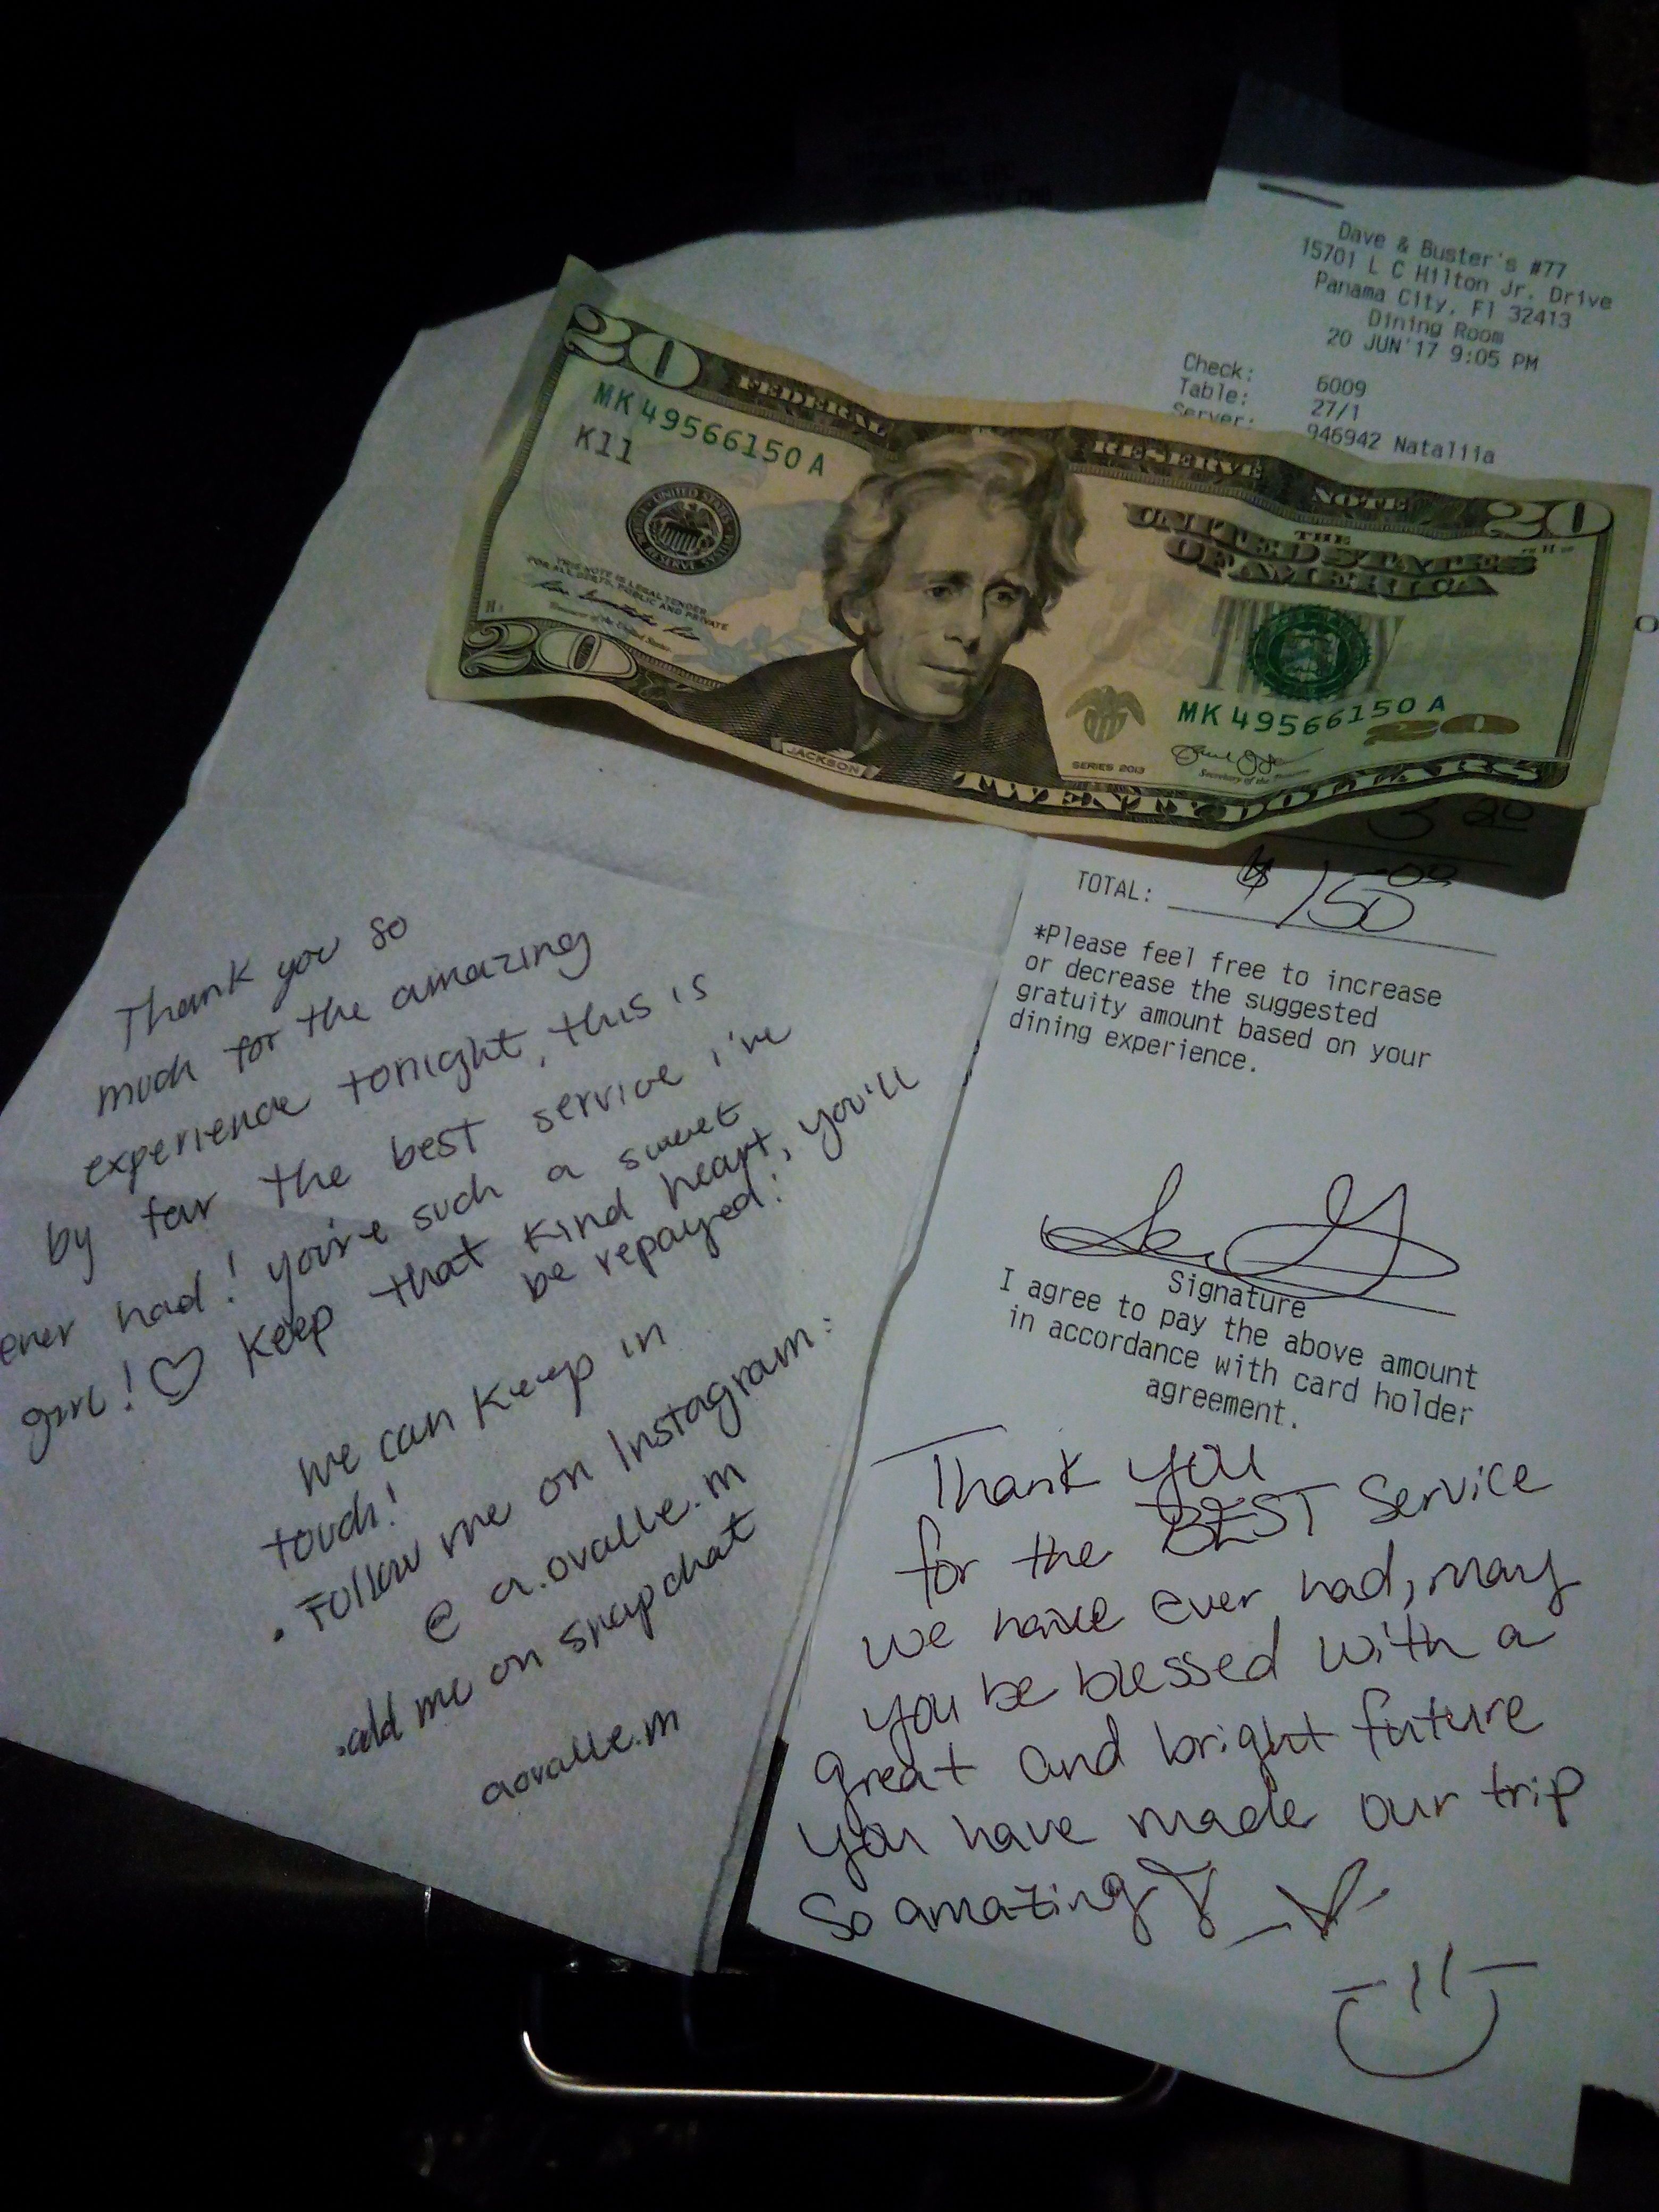 Dave & Buster's #77
15701 L C Hilton Jr. Drive
Panama City, Fl 32413
Dining Room
20 JUN'17 9:05 PM
Check: 6009
Table: 27/1
Server: 946942 Nataliia
20
FEDERAL RESERVE NOTE
20
MK 49566150 A
K11
THE
UNITED STATES
OF AMERICA
THIS NOTE IS LEGAL TENDER
FOR ALL DEBTS, PUBLIC AND PRIVATE
Treasurer of the United States
20
JACKSON
SERIES 2013
MK 49566150 A
20
Secretary of the
TWENTY DOLLARS
3 20
TOTAL: $ 150.00
*Please feel free to increase
or decrease the suggested
gratuity amount based on your
dining experience.
Signature
I agree to pay the above amount
in accordance with card holder
agreement.
Thank you
for the BEST Service
we have ever had, may
you be blessed with a
great and bright future
you have made our trip
So amazing
Thank you so
much for the amazing
experience tonight, this is
by far the best service i've
ever had! you're such a sweet
girl! ♡ Keep that kind heart, you'll
be repayed!
We can keep in
touch!
• Follow me on Instagram:
@ a.ovalle.m
• add me on snapchat
aovalle.m